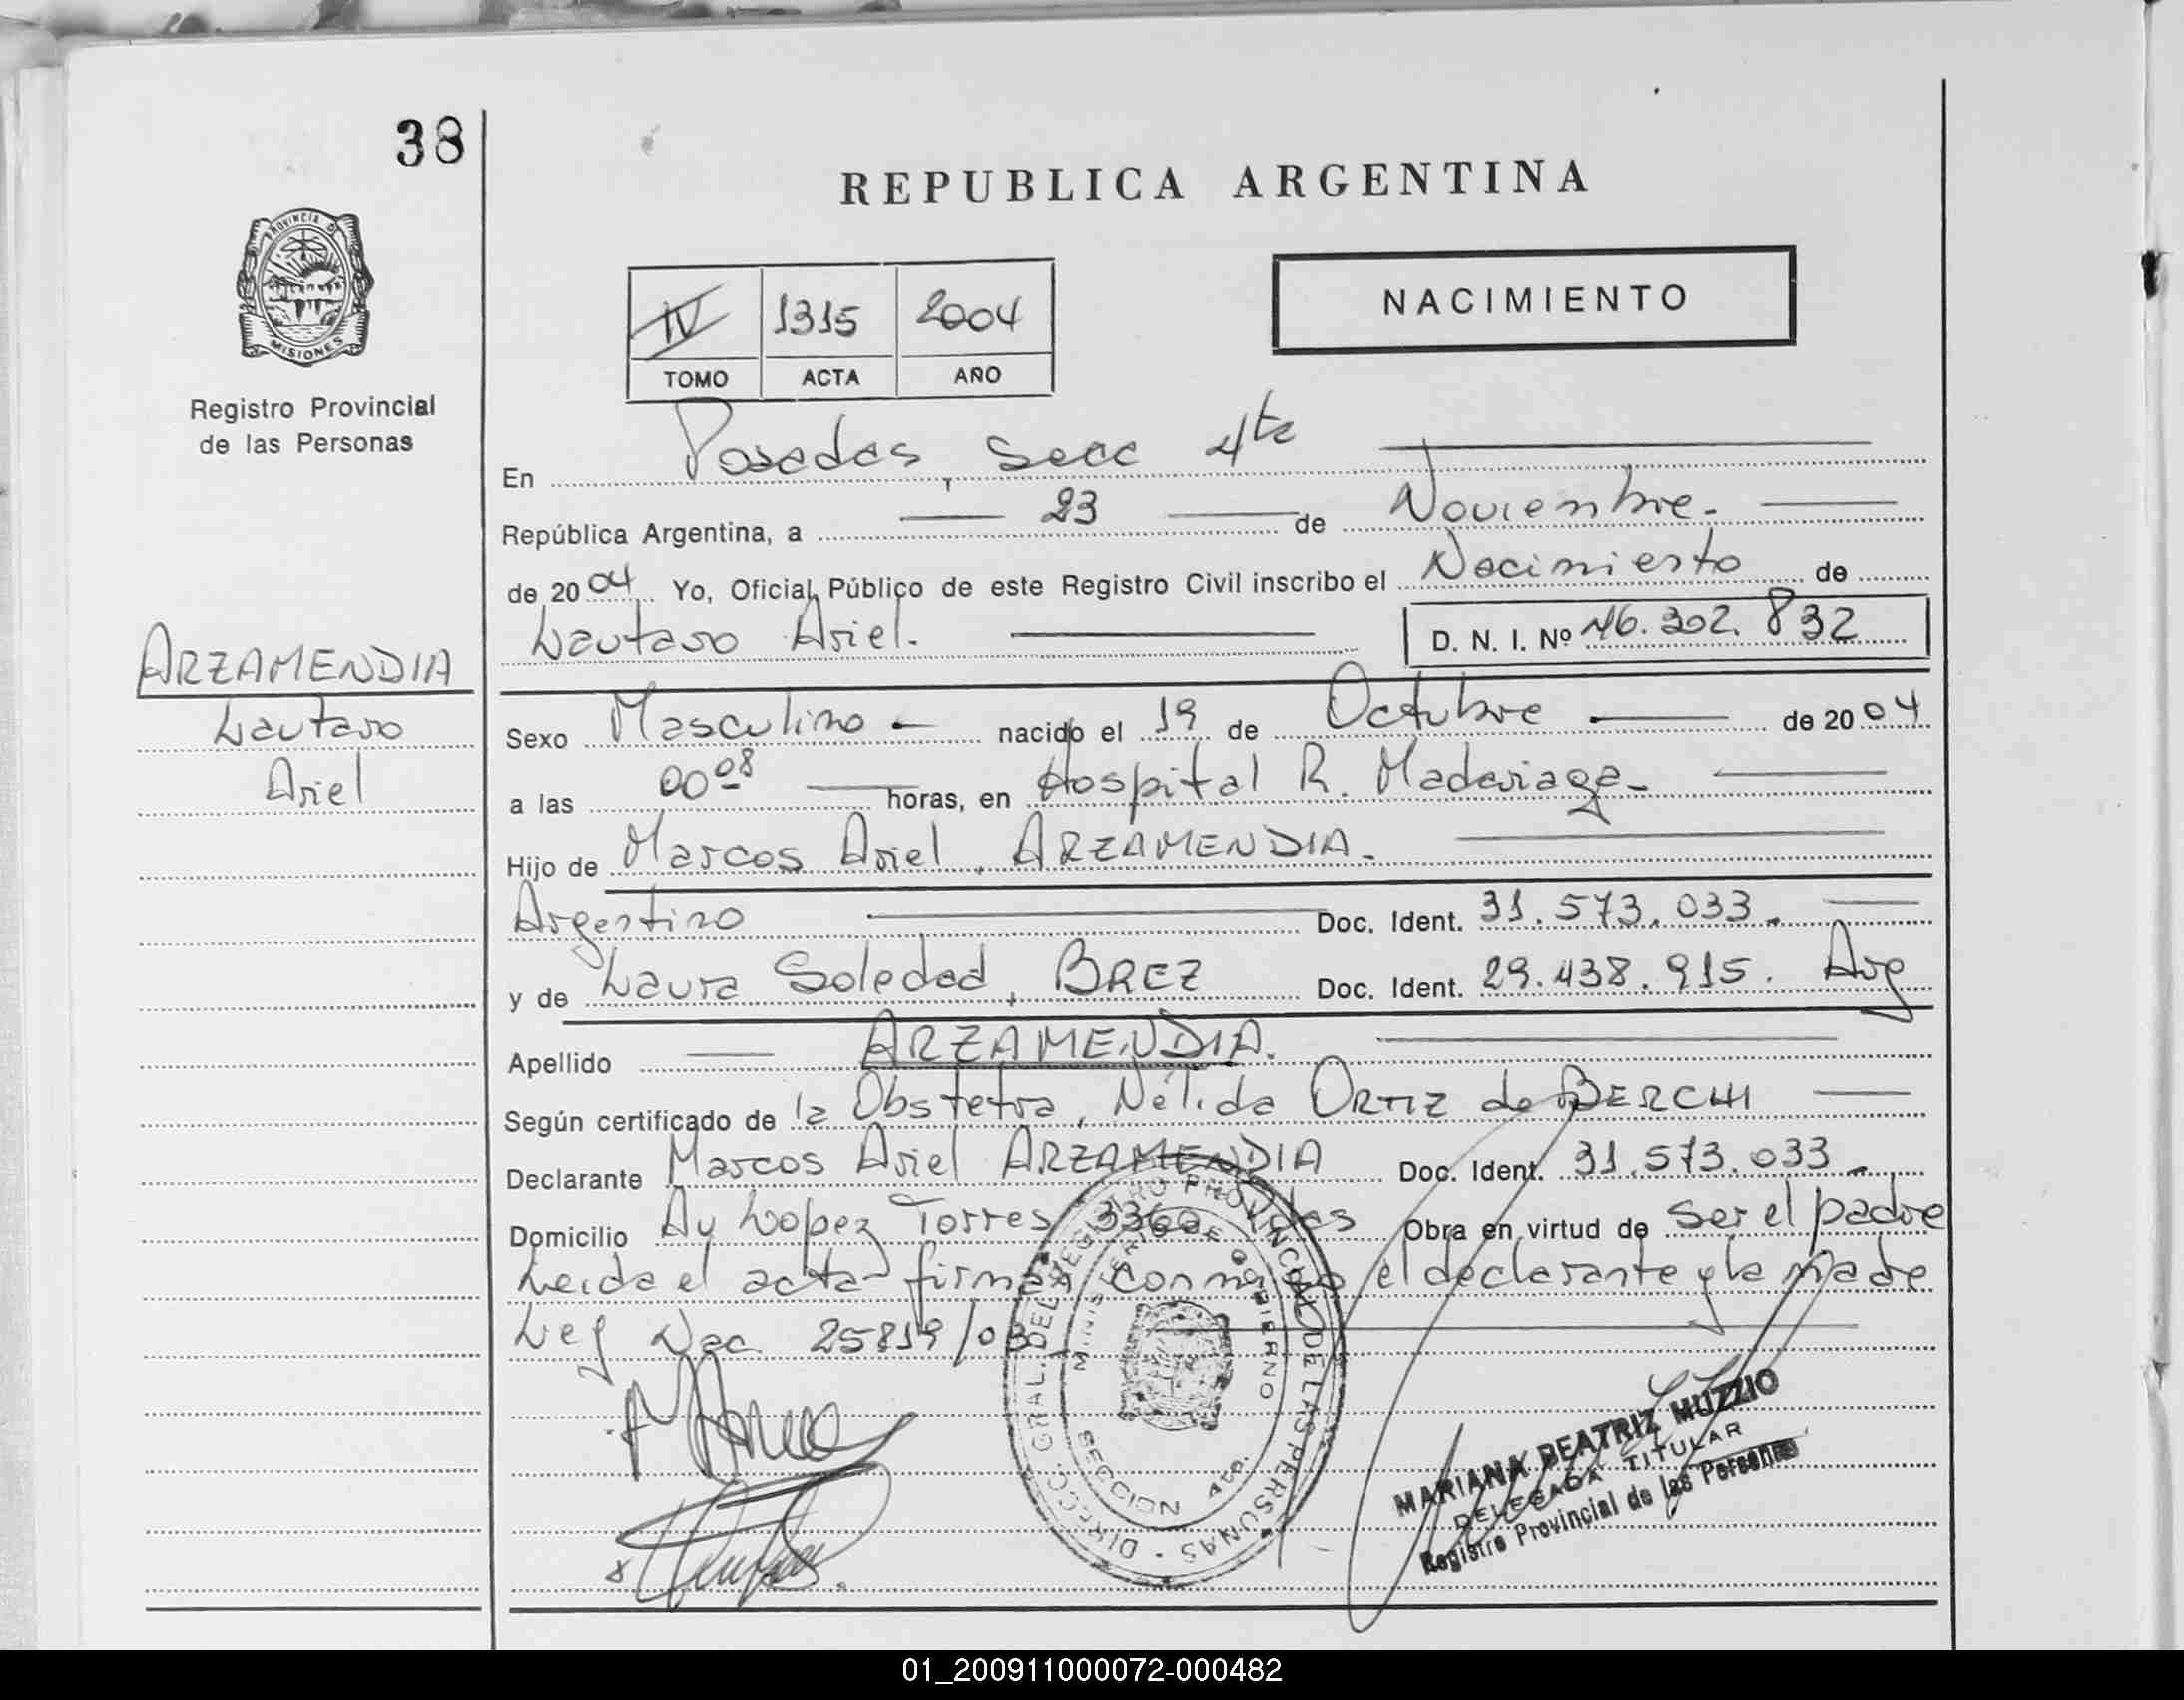 38
REPUBLICA ARGENTINA
PROVINCIA D
MISIONES
Registro Provincial
de las Personas
IV 1315 2004
TOMO ACTA AÑO
NACIMIENTO
En Posadas, Secc 4ta
República Argentina, a 23 de Noviembre.
de 2004 Yo, Oficial Público de este Registro Civil inscribo el Nacimiento de
Lautaro Ariel. D. N. I. Nº 46.302.832
ARZAMENDIA
Lautaro
Ariel
Sexo Masculino nacido el 19 de Octubre de 2004
a las 00 08 horas, en Hospital R. Madariaga
Hijo de Marcos Ariel, ARZAMENDIA
Argentino Doc. Ident. 31.573.033.
y de Laura Soledad, BREZ Doc. Ident. 29.438.915. Arg
Apellido ARZAMENDIA.
Según certificado de la Obstetra, Nélida ORTIZ de BERCHI
Declarante Marcos Ariel ARZAMENDIA Doc. Ident. 31.573.033
Domicilio Av Lopez Torres 3360 Pdas Obra en virtud de ser el padre
Leida el acta firman conmigo el declarante y la madre
Leg Nac. 25819/03
DIRECC. GRAL. DEL REGISTRO PROVINCIAL DE LAS PERSONAS
MINISTERIO DE GOBIERNO
SECCION 4ta.
MARIANA BEATRIZ MUZZIO
DELEGADA TITULAR
Registro Provincial de las Personas
01_200911000072-000482